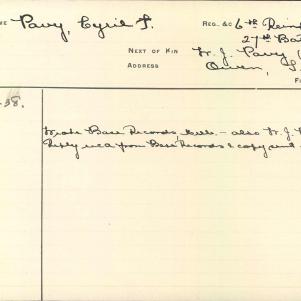 ME Pavy, Cyril F. REG. &C 6th Rein
27th Bat
NEXT OF KIN W. J. Pavy
ADDRESS Owen, S.
F
-38.
Wrote Base Records, – also W. J.
Reply rec'd from Base Records & copy